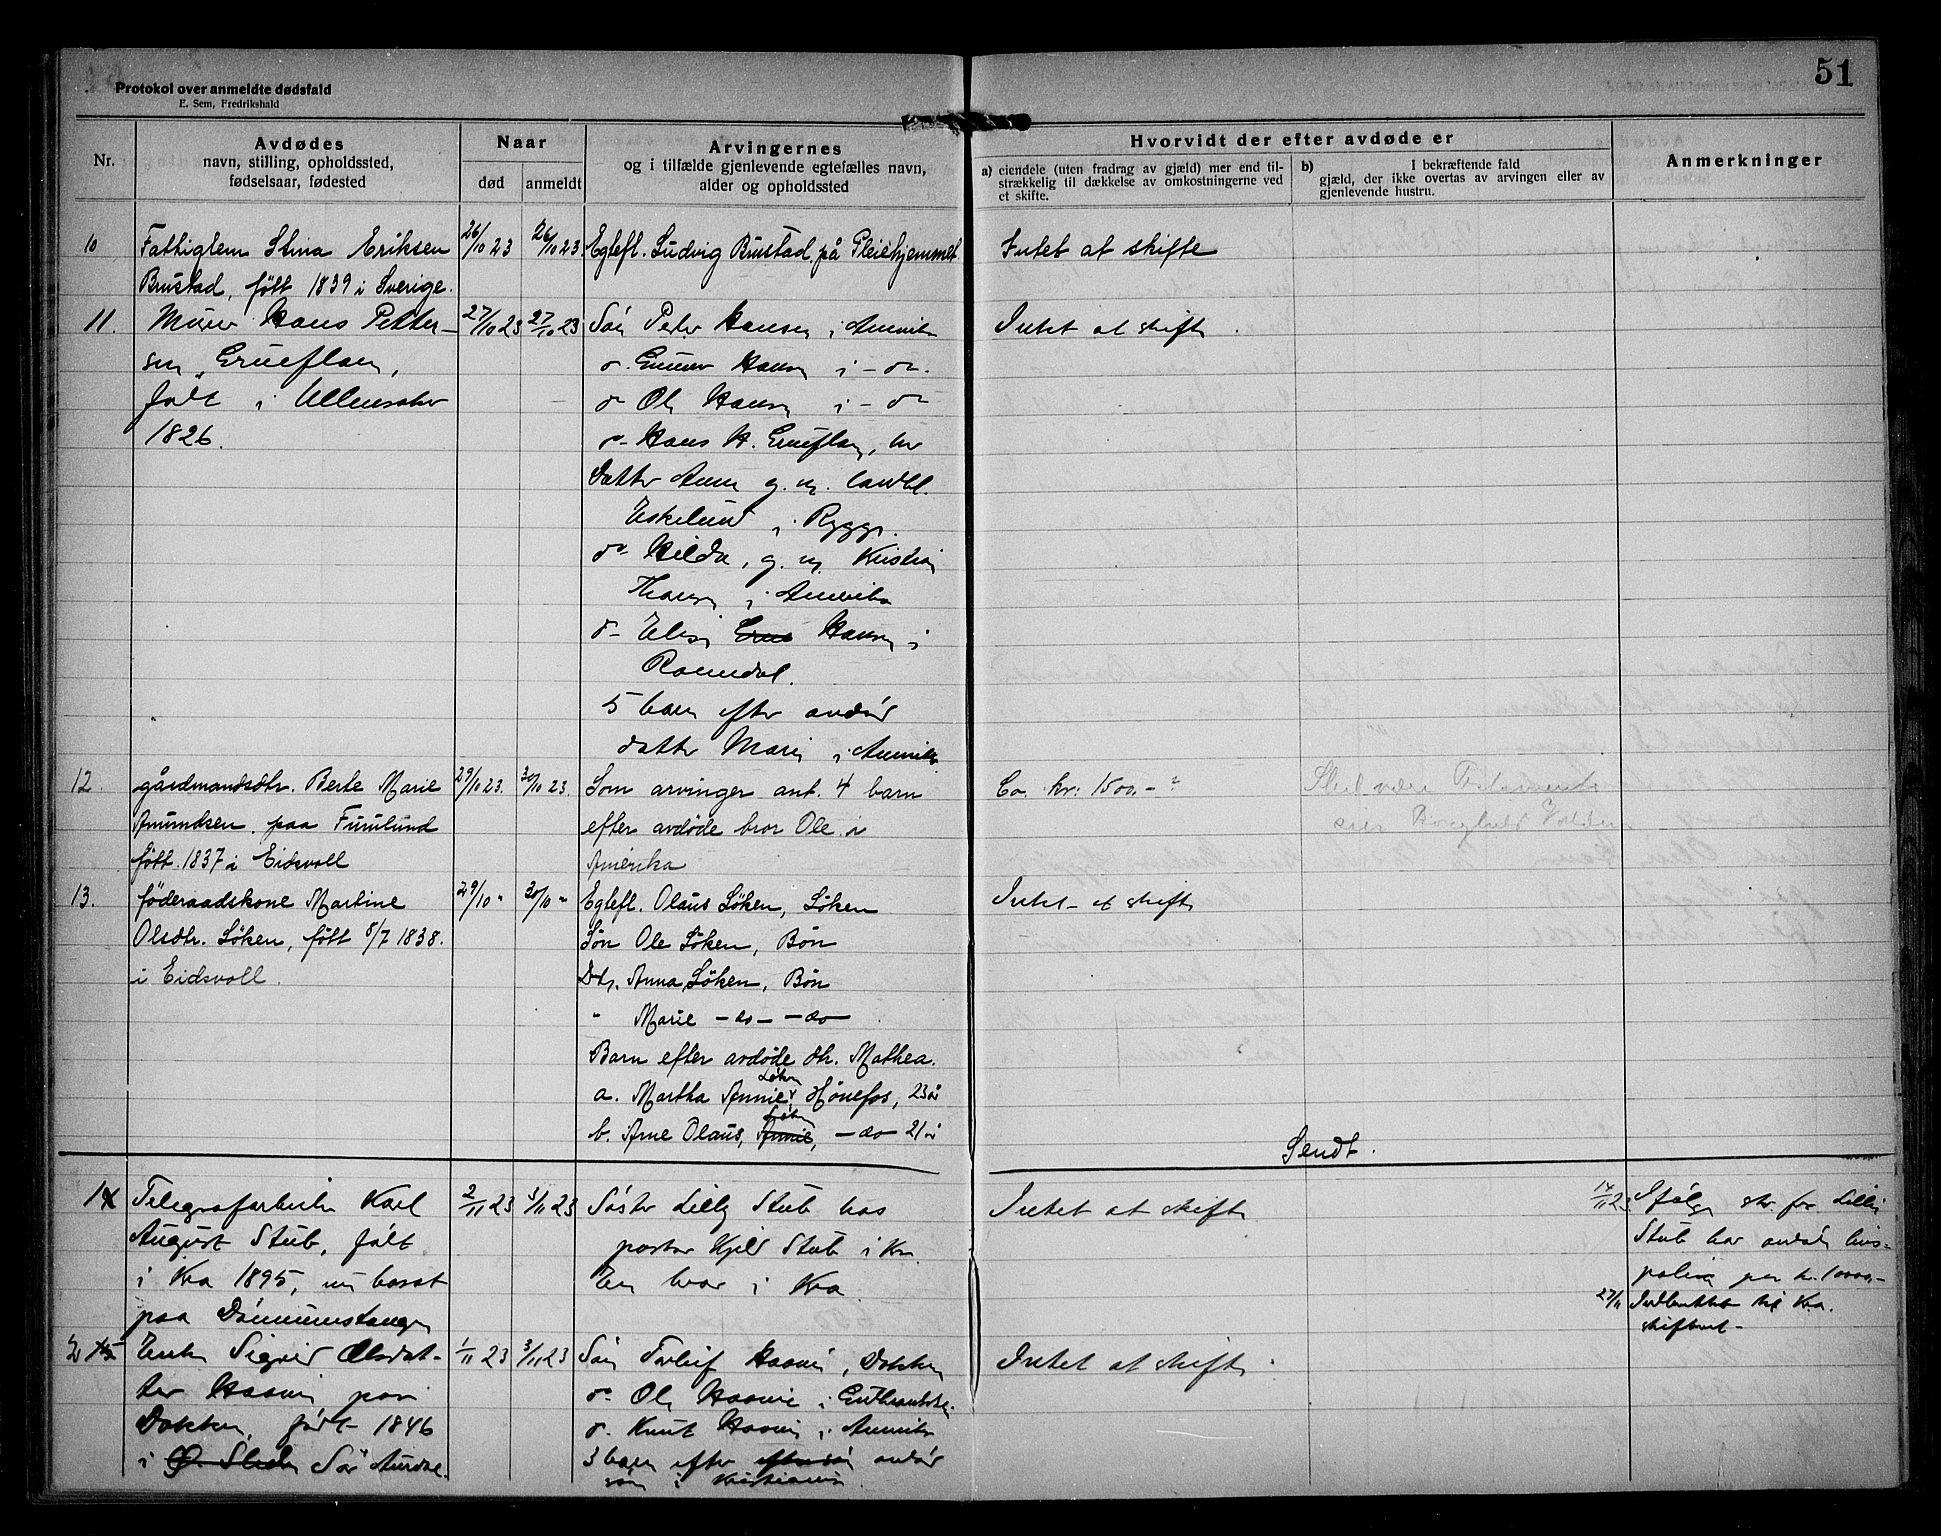 51
Protokol over anmeldte dødsfald
E. Sem, Fredrikshald
Nr.
Avdødes
navn, stilling, opholdssted,
fødselsaar, fødested
Naar
død
anmeldt
Arvingernes
og i tilfælde gjenlevende egtefælles navn,
alder og opholdssted
Hvorvidt der efter avdøde er
a) eiendele (uten fradrag av gjæld) mer end til-
strækkelig til dækkelse av omkostningerne ved
et skifte.
b) I bekræftende fald
gjæld, der ikke overtas av arvingen eller av
gjenlevende hustru.
Anmerkninger
10 Fattiglem Stina Eriksen
Brustad, født 1839 i Sverige.
26/10 23 26/10 23
Egtefl. Ludvig Brustad, på Pleiehjemmet
Intet at skifte
11. Murer Hans Petter-
sen, Grueflaen,
født i Ullensaker
1826.
27/10 23 27/10 23
Søn Peder Hansen i Amerika
do. Gunner Hansen i - do.
do Ole Hansen i - do
do- Hans H. Grueflaen, her
Datter Anna g. m. landbr.
Eskelund i Rygge.
do- Hilda, g. m. Kristian
Thoresen i Amerika
do- Elise Hansen i
Romedal.
5 barn efter avdød
datter Marie i Amerika
Intet at skifte
12. gårdmandsdtr. Berte Marie
Amundsen paa Furulund
født 1837 i Eidsvoll
29/10 23. 30/10 23.
Som arvinger ant. 4 barn
efter avdøde bror Ole i
Amerika
Ca. kr. 1500,- ?
Skal være Testament
13. føderaadskone Martine
Olsdtr. Løken, født 8/7 1838.
i Eidsvoll.
29/10 " 30/10 "
Egtefl. Olaus Løken, Løken
Søn Ole Løken, Bøn
Dtr. Anna Løken, Bøn
" Marie - do - - do -
Barn efter avdøde dtr. Mathea.
a. Martha Annie Løken, Hønefos, 23 år
b. Arne Olaus, Annie Løken, - do - 21 år
Intet at skifte
Sendt.
14 Telegrafarbeider Karl
August Stub, født
i Kra 1895, nu bosat
paa Dønnumstangen
2/11 23 3/11 23
Søster Lilly Stub hos
pastor Kjeld Stub i Kra
En bror i Kra
Intet at skifte
14/11 23 Ifølge skr. fra Lilli
Stub har avdøde livs-
polise paa kr. 10000,-
27/11 Indberettet til Kra.
skifteret -
15 Enke Sigrid Olsdat-
ter Haavi paa
Dokken, født 1846
i Ø. Slidre Sør Aurdal.
1/11 23 3/11 23
Søn Torleif Haavi, Dokken
do Ole Haavie i Gudbrandsdalen
do. Knut Haavi i Amerika
3 barn efter avdød
søn i Kristiania
Intet at skifte